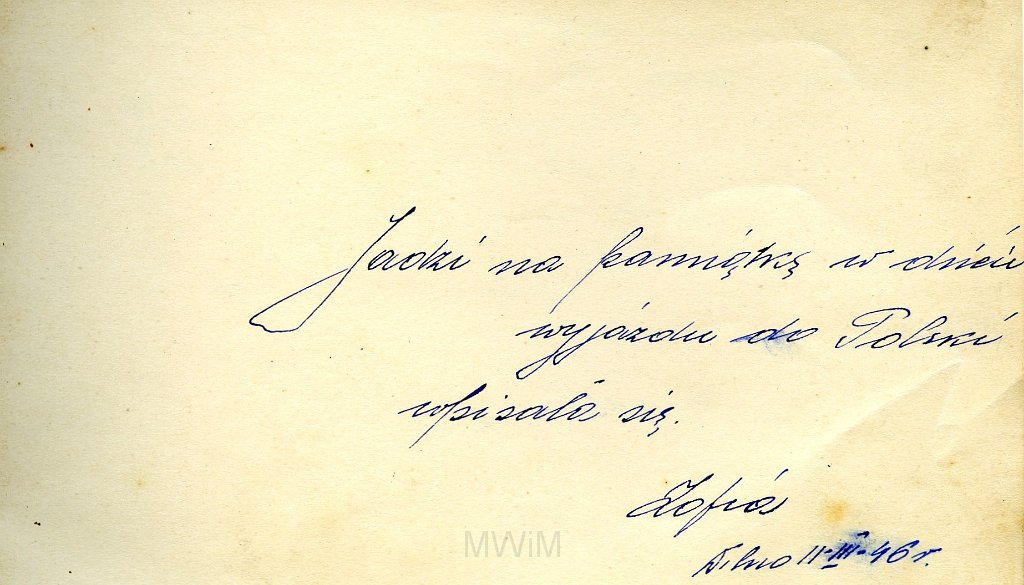 Jadzi na pamiątkę w dzień
wyjazdu do Polski
wpisała się.
Zofia
Wilno 11-III-46 r.
MWiM